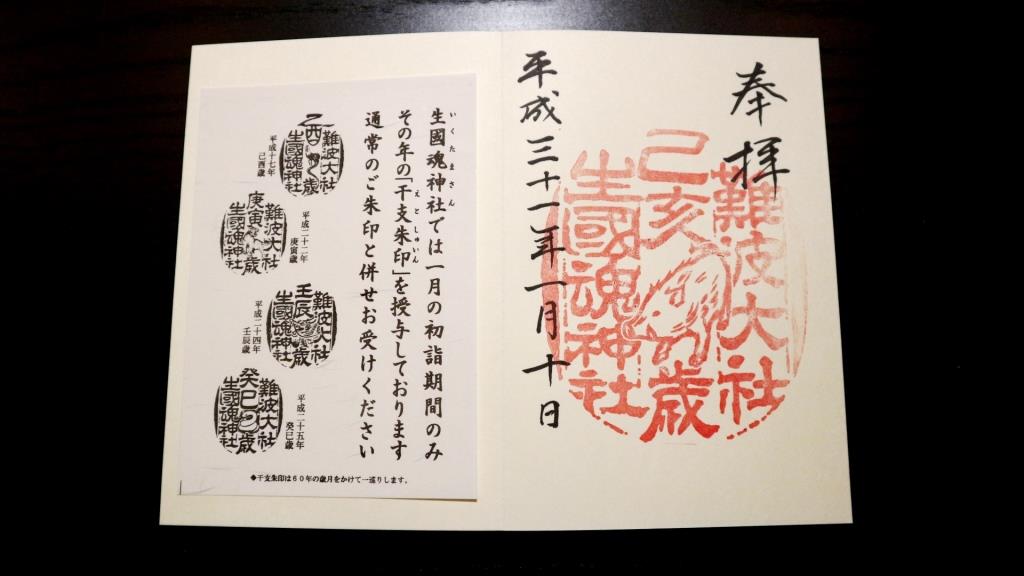 奉拝
難波大社
己亥歳
生國魂神社
平成三十一年一月十日
生國魂神社では一月の初詣期間のみ
いくたまさん
その年の「干支朱印」を授与しております
えとしゅいん
通常のご朱印と併せお受けください
難波大社
乙酉歳
生國魂神社
平成十七年
己酉歳
難波大社
庚寅歳
生國魂神社
平成二十二年
庚寅歳
難波大社
壬辰歳
生國魂神社
平成二十四年
壬辰歳
難波大社
癸巳歳
生國魂神社
平成二十五年
癸巳歳
◆干支朱印は60年の歳月をかけて一巡りします。